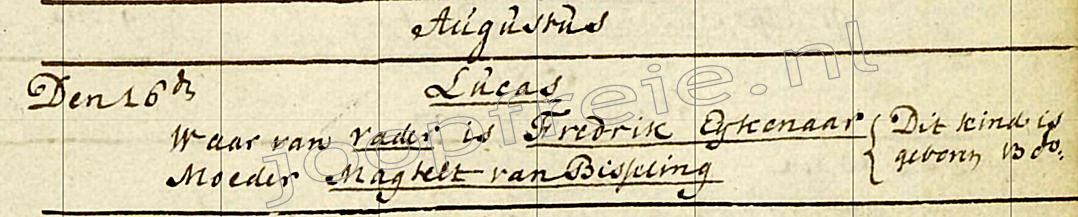 Augustus
Den 16den Lucas
Waar van vader is Fredrik Eykenaar { Dit kind is
Moeder Magtelt van Bisseling { geboren 13 do.
joopfreie.nl